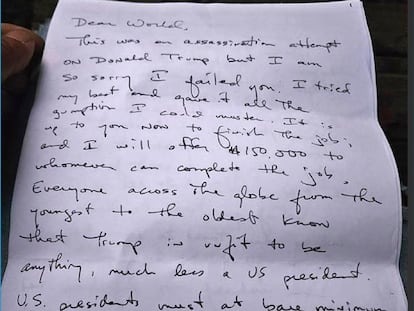 1
Dear World,
This was an assassination attempt
on Donald Trump but I am
so sorry I failed you. I tried
my best and gave it all the
gumption I could muster. It is
up to you now to finish the job;
and I will offer $150,000 to
whomever can complete the job.
Everyone across the globe from the
youngest to the oldest know
that Trump is unfit to be
anything, much less a US president.
U.S. presidents must at bare minimum